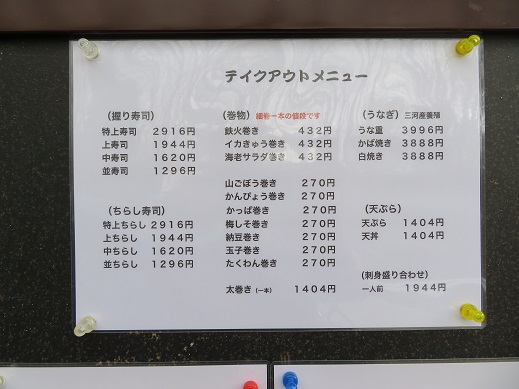 テイクアウトメニュー
(握り寿司)
特上寿司 2916円
上寿司 1944円
中寿司 1620円
並寿司 1296円
(ちらし寿司)
特上ちらし 2916円
上ちらし 1944円
中ちらし 1620円
並ちらし 1296円
(巻物) 細巻一本の値段です
鉄火巻き 432円
イカきゅう巻き 432円
海老サラダ巻き 432円
山ごぼう巻き 270円
かんぴょう巻き 270円
かっぱ巻き 270円
梅しそ巻き 270円
納豆巻き 270円
玉子巻き 270円
たくわん巻き 270円
太巻き (一本) 1404円
(うなぎ) 三河産養殖
うな重 3996円
かば焼き 3888円
白焼き 3888円
(天ぷら)
天ぷら 1404円
天丼 1404円
(刺身盛り合わせ)
一人前 1944円